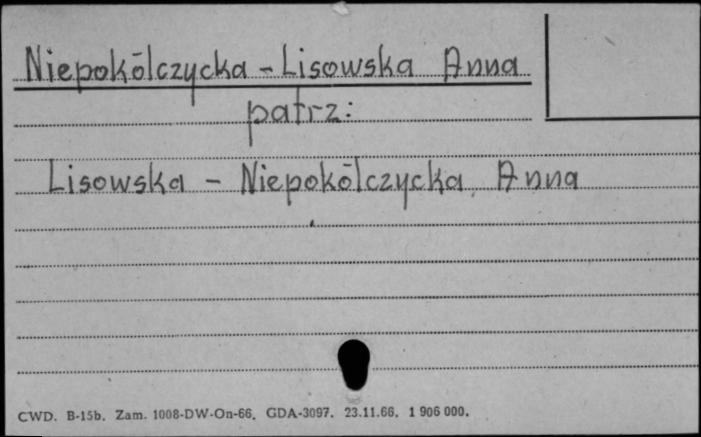 Niepokólczycka - Lisowska Anna
patrz:
Lisowska - Niepokólczycka Anna
CWD. B-15b. Zam. 1008-DW-On-66. GDA-3097. 23.11.66. 1 906 000.